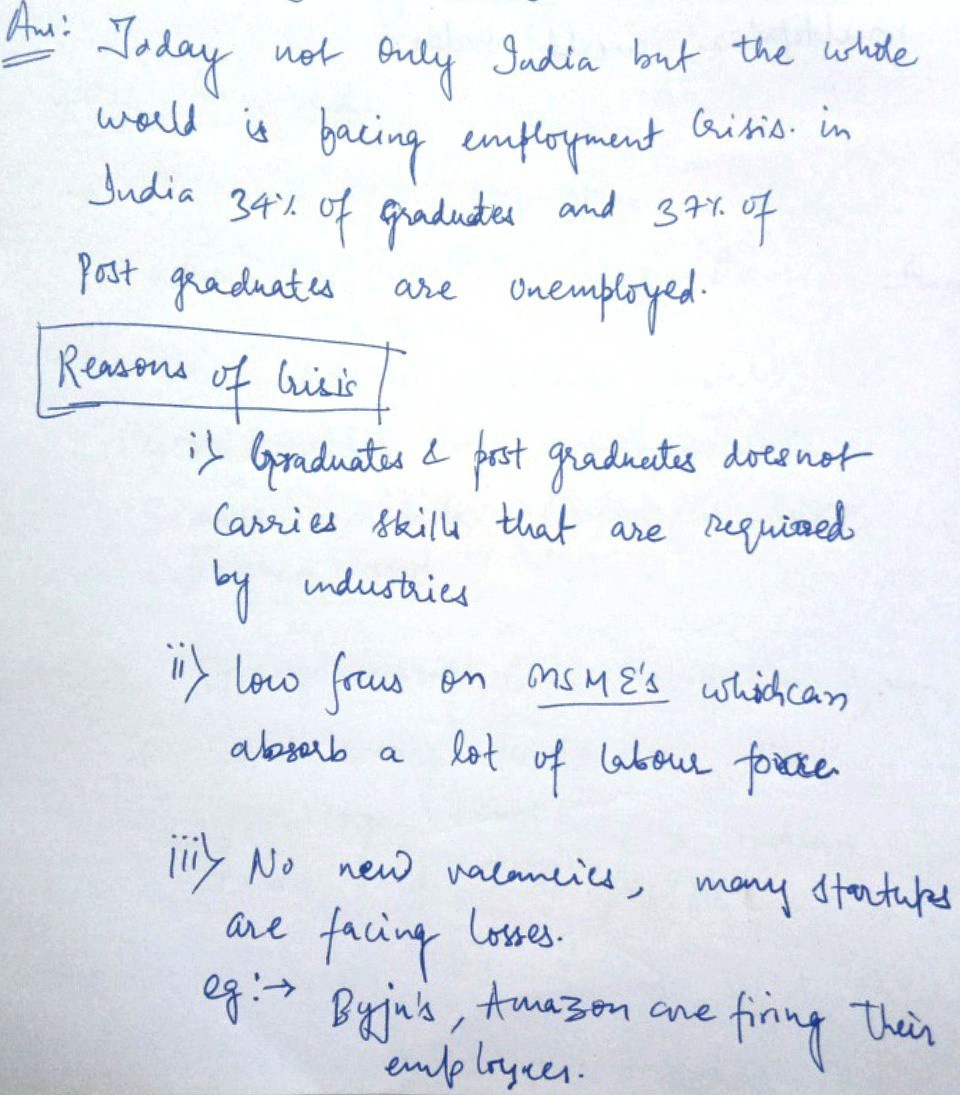 Ans: Today not only India but the whole
world is facing employment Crisis. in
India 34% of graduates and 37% of
Post graduates are unemployed.
Reasons of Crisis
i) Graduates & post graduates does not
Carries skills that are required
by industries
ii) low focus on MSME's which can
absorb a lot of labour force
iii) No new vacancies, many startups
are facing losses.
eg:→ Byju's, Amazon are firing their
employees.